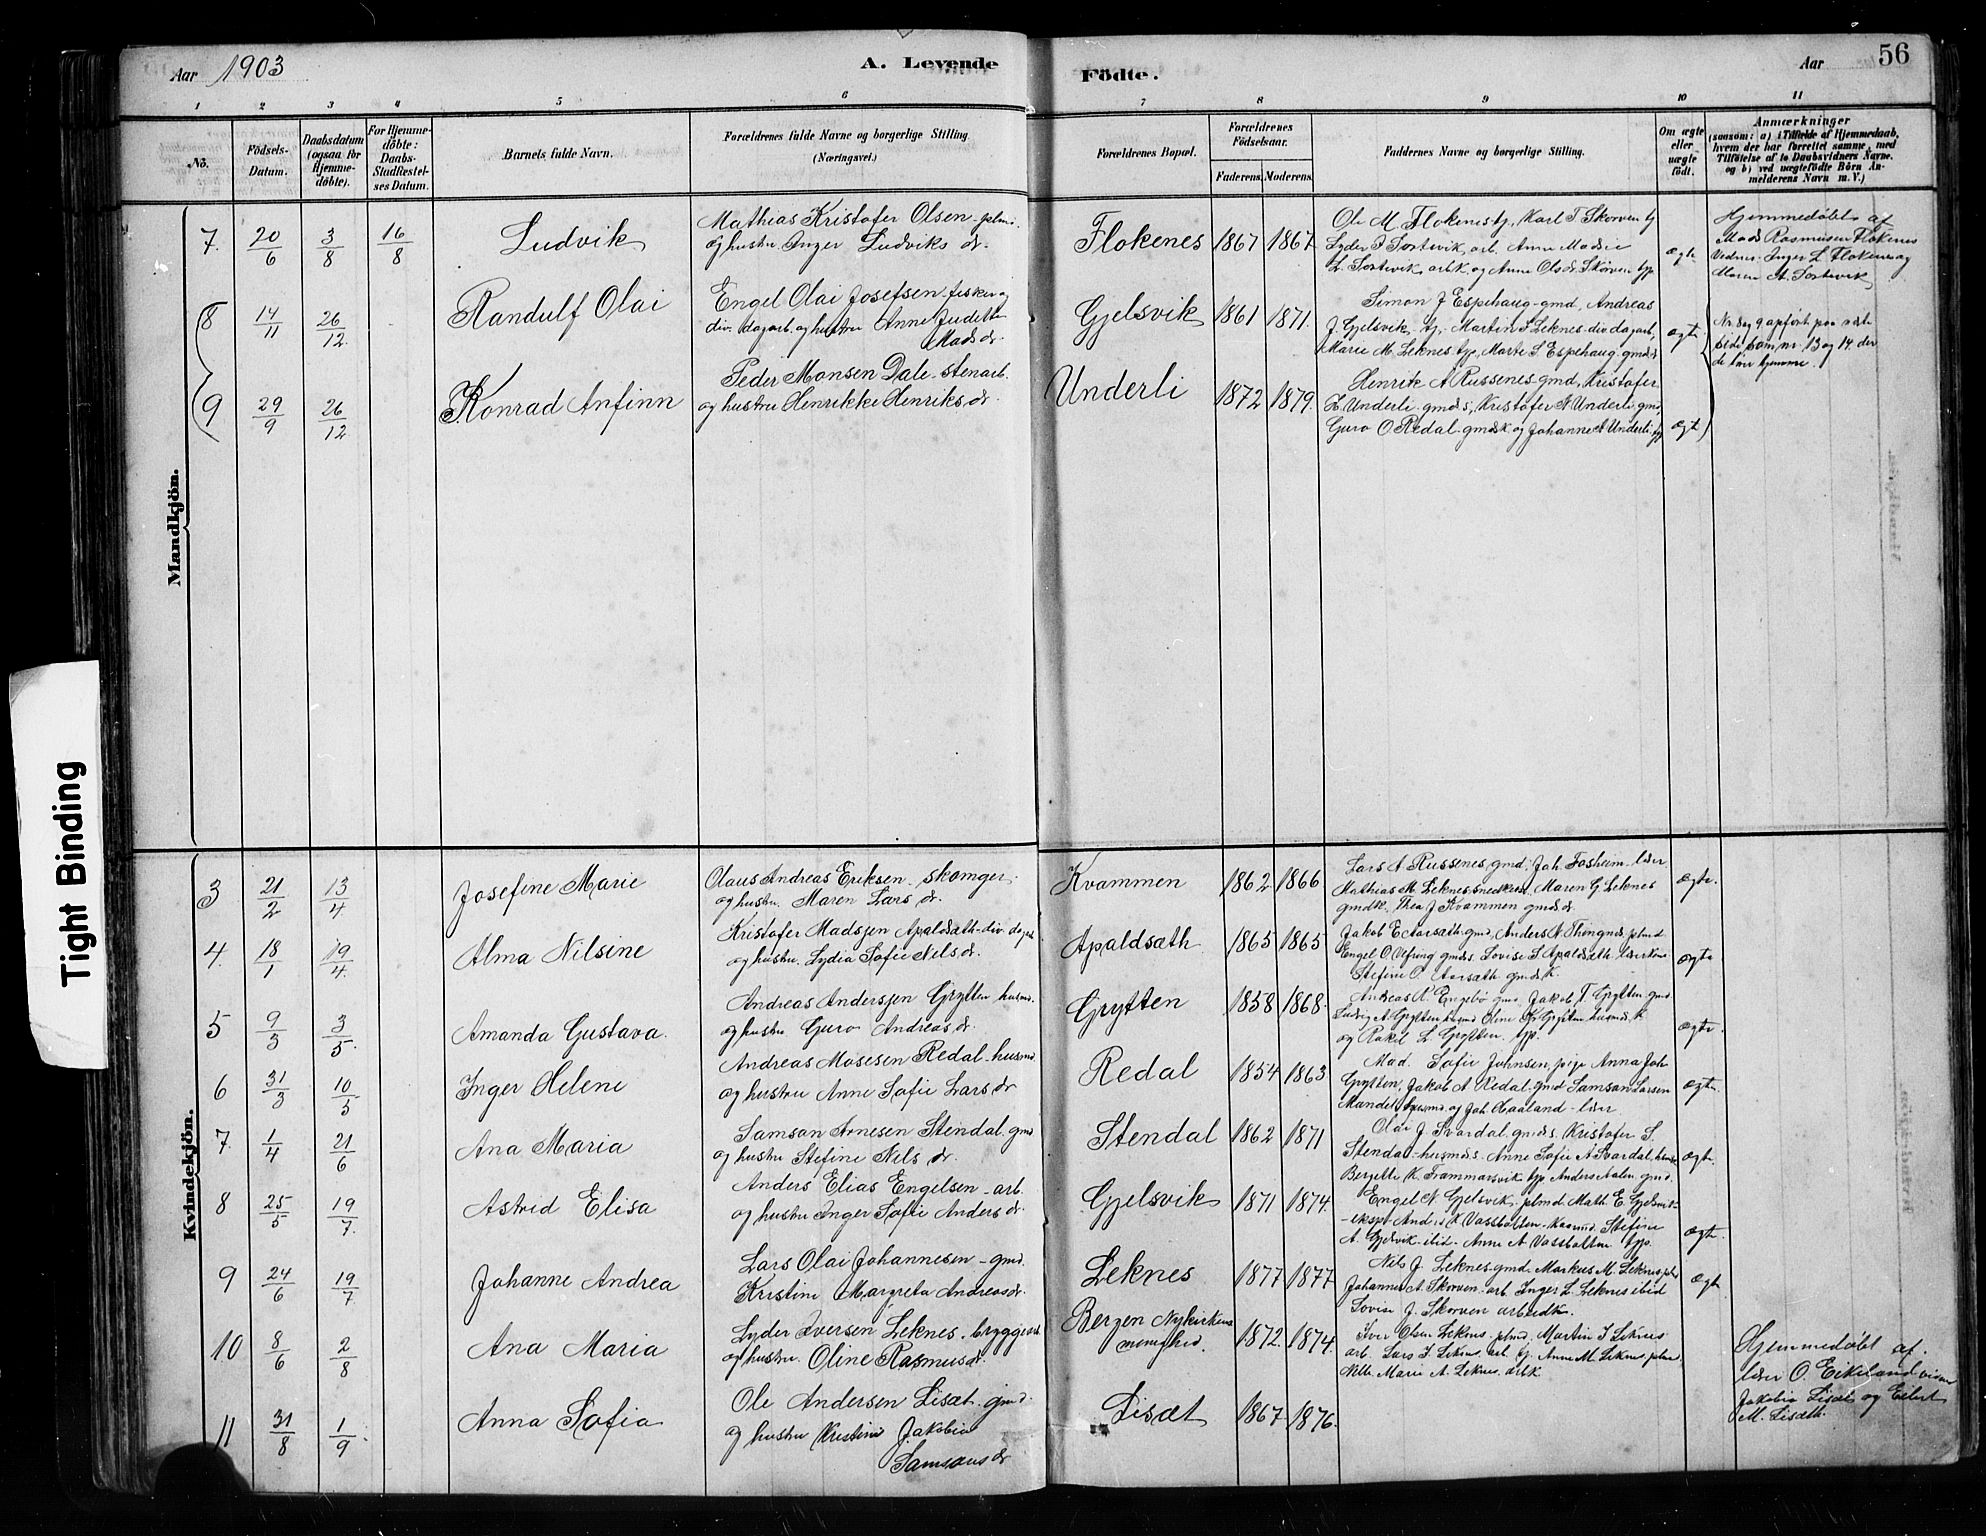 Aar 1903
A. Levende
Födte.
Aar
56
1 2 3 4 5 6 7 8 9 10 11
No.
Födsels-
Datum.
Daabsdatum
(ogsaa for
Hjemme-
döbte).
For Hjemme-
döbte:
Daabs-
Stadfæstel-
ses Datum.
Barnets fulde Navn.
Forældrenes fulde Navne og borgerlige Stilling.
(Næringsvei.)
Forældrenes Bopæl.
Forældrenes
Födselsaar.
Faderens. Moderens.
Faddernes Navne og borgerlige Stilling.
Om ægte
eller
uægte
födt.
Anmærkninger
(saasom: a) i Tilfælde af Hjemmedaab,
hvem der har forrettet samme, med
Tilföielse af to Daabsvidners Navne,
og b) ved uægtefödte Börn An-
melderens Navn m. V.)
Mandkjön.
7. 20/6 3/8 16/8 Ludvik
Mathias Kristofer Olsen plm.
og hustru Inger Ludviks dr.
Flokenes 1867 1867
Ole M. Flokenes tj, Karl T. Skorven tj
Lyder P. Tortevik, arb. Anne
L. Tortevik arb.k. og Anne Ols dr Skorven tp.
ægte
Hjemmedøbt af
Mads Rasmusen Flokenes
Vidner: Inger L. Flokenes og
Maren A. Tortevik
8 14/11 26/12 Randulf Olai
Engel Olai Josefsen fisker og
div. dagarb. og hustru Anne Judethe
Mads dr.
Gjelsvik 1861 1871.
Simon J Espehaug gmd, Andreas
J. Gjelsvik tj. Martin S Leknes div dagarb,
Marie M. Leknes tp, Marte S Espehaug gmds
ægte
Nr. 8 og 9 opført paa side
side som nr. 13 og 14. der
de høre hjemme.
9 29/9 26/12 Konrad Anfinn
Peder Monsen Dale stenarb.
og hustru Henrikke Henriks dr.
Underli 1872 1879.
Henrik A Russenes gmd, Kristofer
H. Underli gmds, Kristofer N Underli gmd,
Guro O Redal gmdsk og Johanne A Underli tp
ægt
Kvindekjön.
3 21/2 13/4 Josefine Marie
Olaus Andreas Eriksen skomager
og hustru Maren Lars dr.
Kvammen 1862 1866
Lars A Russenes gmd. Joh. Fosheim lærer
Mathias M. Leknes snedker, Maren G. Leknes
gmdk. Thea J Kvammen gmds dr
ægte.
4. 18/1 19/4. Alma Nilsine
Kristofer Madssen Apaldsæth div. dagarb
og hustru Lydia Sofie Nils dr.
Apaldsæth 1865 1865
Jakob E Aarsæth gmd, Anders N Thingnes plmd
Engel O Ulfring gmds. Lovise S Apaldsæth
Stefine O. Aarsæth gmds K.
ægte
5 9/3 3/5. Amanda Gustava.
Andreas Anderssen Grytten husmd.
og hustru Guro Andreas dr.
Grytten 1858 1868.
Andreas A. Engebø gmd, Jakob T. Grytten gmd.
Ludvig A Grytten husmd Oline Kr Grytten husmds K
og Rakel L. Grytten tp.
ægte.
6 31/3 10/5 Inger Helene
Andreas Mosesen Redal husmd
og hustru Anne Sofie Lars dr
Redal 1854 1863
Mad. Sofie Johnsen, pige Anna Joh
Grytten, Jakob A Redal gmd Samson Larsen
Mandel husmd. og Joh. Haaland lærer.
ægte.
7. 1/4 21/6 Ana Maria
Samson Arnesen Stendal gmd
og hustru Stefine Nils dr.
Stendal 1862 1871
Olai J. Svardal gmds. Kristofer S.
Stendal husmds. Anne Sofie A Svardal,
Bergitte K. Frammarsvik tp Anders Aalen gmd.
ægte.
8 25/5 19/7. Astrid Elisa
Anders Elias Engelsen arb.
og hustru Inger Sofie Anders dr.
Gjelsvik 1871 1874.
Engel N. Gjelsvik plmd. Math. E. Gjelsvik
eksp. And.s K Vassbotten Stefine
A. Gjelsvik ibid. Anne A. Vassbotten tp.
ægte.
9 24/6 19/7 Johanne Andrea
Lars Olai Johannesen gmd.
Kristine Margreta Andreas dr.
Leknes 1877 1877
Nils J. Leknes gmd. Markus M. Leknes plmd
Johannes A. Skorven arb. Inger L. Leknes ibid
Lovise J. Skorven arbeidk.
ægte
10 8/6 2/8 Ana Maria
Lyder Iversen Leknes bryggearb
og hustru Oline Rasmus dr.
Bergen Nykirkens
menighed. 1872. 1874.
Iver Olsen Leknes plmd. Martin I Leknes
arb. Lars I. Leknes arb. tj. Anne M. Leknes plmd
Nille Marie A. Leknes arbk.
11 31/8 1/9 Anna Sofia
Ole Andersen Lisæt gmd.
og hustru Kristine Jakobia
Samsons dr
Lisæt 1867 1876.
Hjemmedøbt af.
lærer O. Eikeland
Jakobia Lisæt og Eilert
M. Lisæth.
Tight Binding